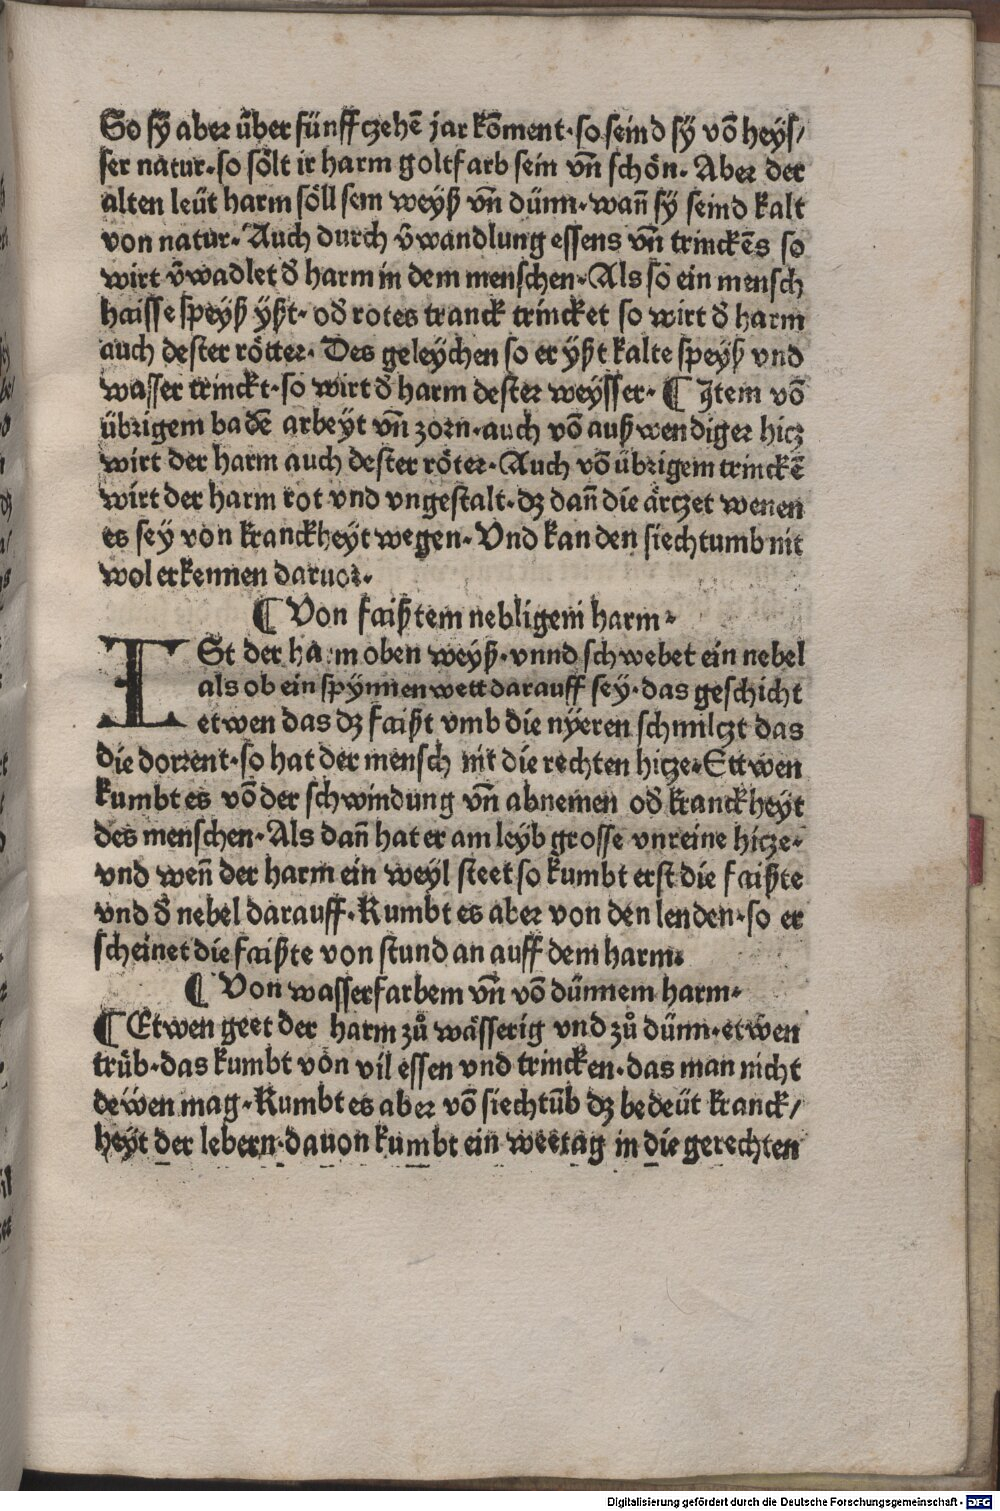 So sÿ aber über fünffczehē jar kōment·so seind sÿ vō heys/
ser natur·so sölt ir harm goltfarb sein vn̄ schön· Aber der
alten leüt harm söll sein weyß vn̄ dünn·wan̄ sÿ seind kalt
von natur·Auch durch v̄wandlung essens vn̄ trinckēs so
wirt v̄wadlet d̄ harm in dem menschen·Als so ein mensch
haisse speyß yßt· od̄ rotes tranck trincket so wirt d̄ harm
auch dester rötter· Des geleychen so er yßt kalte speyß vnd
wasser trinckt·so wirt d̄ harm dester weysser· ¶ Item vō
übrigem badē arbeyt vn̄ zorn·auch vō außwendiger hicz
wirt der harm auch dester röter·Auch vō übrigem trinckē
wirt der harm rot vnd vngestalt·dz dan̄ die ärczet wenen
es sey von kranckheyt wegen·Vnd kan den siechtumb nit
wol erkennen daruor·
¶ Von faißtem nebligem harm·
ISt der harm oben weyß·vnnd schwebet ein nebel
als ob ein spynnen wett darauff sey·das geschicht
etwen das dz faißt vmb die nyeren schmilczt das
die dorrent·so hat der mensch nit die rechten hicze·Ettwen
kumbt es vō der schwindung vn̄ abnemen od̄ kranckheyt
des menschen·Als dan̄ hat er am leyb grosse vnreine hicze·
vnd wen̄ der harm ein weyl steet so kumbt erst die faißte
vnd d̄ nebel darauff·Kumbt es aber von den lenden·so er
scheinet die faißte von stund an auff dem harm·
¶ Von wasserfarbem vn̄ vō dünnem harm·
¶ Etwen geet der harm zů wässerig vnd zů dünn·etwen
trüb·das kumbt von vil essen vnd trincken·das man nicht
dewen mag·Kumbt es aber vō siechtūb dz bedeüt kranck/
heyt der lebern·dauon kumbt ein weetag in die gerechten
Digitalisierung gefördert durch die Deutsche Forschungsgemeinschaft - DFG